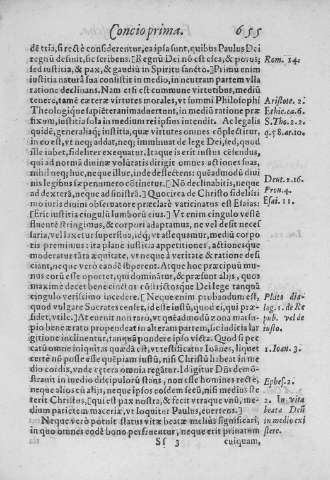 Concio prima. 655
dē tria, si rectè considerentur, ea ipsa sunt, quibus Paulus Dei
regnū definit, sic scribens. [Regnū Dei nō est esca, & potus;
sed iustitia, & pax, & gaudiū in Spiritu sancto.] Primū enim
iustitia naturā sua consistit in medio, in neutram partem vlla
ratione declinans. Nam etsi est commune virtutibus, mediū
tenere, tamē cæteræ virtutes morales, vt summi Philosophi
Theologique sapiēter animaduertunt, in mediū rationis præ
fixum, iustitia sola in mediū rei ipsius intendit. Ac legalis
quidē, generalisq; iustitia, quæ virtutes omnes cōplectitur,
in eo est, vt neq; addat, neq; imminuat de lege Dei, sed, quod
ille iubet, fideliter exequatur. Itaque is erit iustus censendus,
qui ad normā diuinæ volūtatis dirigit omnes actiones suas,
nihil neq; huc, neque illuc, inde deflectens: quēadmodū diui
nis legibus sæpenumero cōtinetur. [Nō declinabitis, neque
ad dexterā, neque ad sinistrā.] Quocirca de Christo fidelissi
mo iuris diuini obseruatore præclarè vaticinatus est Esaias:
[Erit iustitia cingulū lumborū eius.] Vt enim cingulo vestē
fluentē stringimus, & corpori adaptamus, ne vel desit neces
saria, vel laxetur superflua, idq; vt assequamur, mediū corpo
ris premimus: ita planè iustitia appetitiones, actionesque
moderatur tāta æquitate, vt neque à veritate & ratione defi
ciant, neque verò eandē superent. Atque hoc præcipuū mu-
nus eorū esse oportet, qui dominātur, & præsunt alijs, quos
maxime decet benecincto corpore districtosque Dei lege tanquā
cingulo verissimo incedere. [Neque enim probandum est,
quod vulgare Socrates censet, id esse iustū, quod ei, qui præ-
sidet, vtile.] At euenit non raro, vt quēadmodū zona mātis-
pio bene ærato propendet in alteram partem, sic iudicis la
gitione inclinentur, tanquā pondere ipso victa. Quod si pec
catū omne iniquitas quædā est, vt testificatur Ioānes, liquet
certè nō posse esse quēpiam iustū, nisi Christū habeat in me
dio cordis, vnde cętera omnia regātur. Id igitur Dn̄s demō-
strauit in medio discipulorū stans, non esse homines rectè,
neque alios cū alijs, neque ipsos eosdem secū, nisi medius ste
terit Christus, [qui est pax nostra, & fecit vtraque vnū, me-
dium parietem maceriæ, vt loquitur Paulus, euertens.]
Neque verò potuit status vitæ beatæ melius significari,
in quo omnes eodē bono perfruentur, neque erit priuatum
Sf 3 cuiquam,
Rom. 14.
Aristote. 2.
Ethic. ca. 6.
S. Tho. 2. 2.
q. 58. ar. 10.
Deut. 2. 16.
Prou. 4.
Esai. 11.
Plato dia-
log. 1. de Re
pub. vel de
iusto.
1. Ioan. 3.
Ephes. 2.
2. In vita
beata Deū
in medio exi
stere.